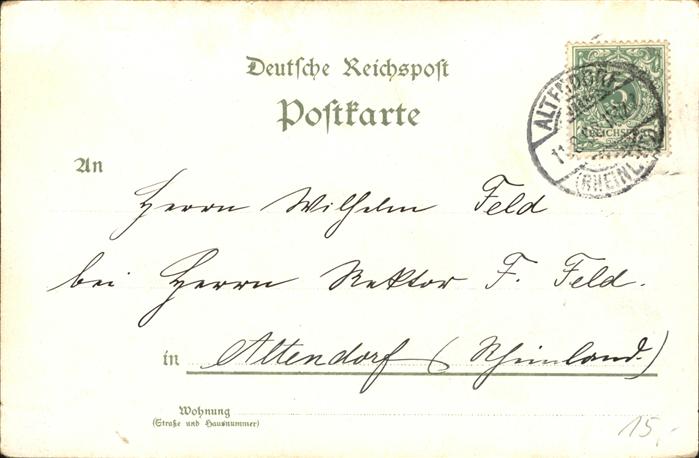 Deutsche Reichspost
Postkarte
ALTENDORF
(RHEINL.)
REICHSPOST
5
An
Herrn Wilhelm Feld
bei Herrn Rektor F. Feld.
in Altendorf (Rheinland.)
Wohnung
(Straße und Hausnummer)
15,-